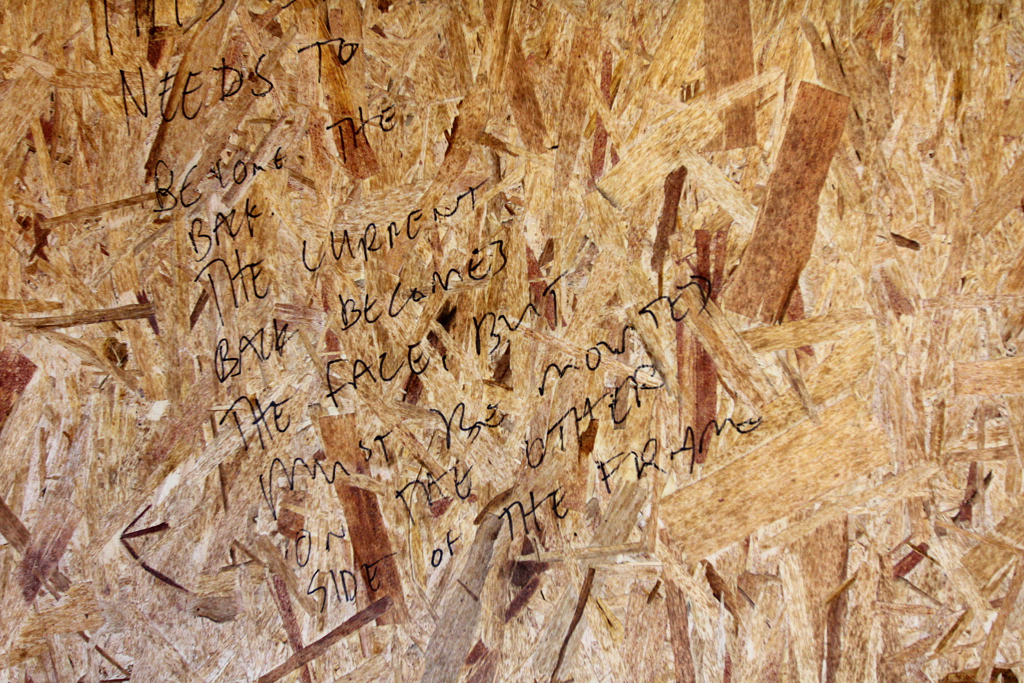 THIS
NEEDS TO
BECOME THE
BACK.
THE CURRENT
BACK BECOMES
THE FACE, BUT
MUST BE MOUNTED
ON THE OTHER
SIDE OF THE FRAME